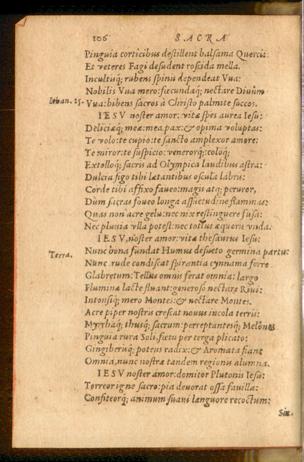 106 SACRA
Pinguia corticibus destillent balsama Quercus:
Et veteres Fagi desudent roscida mella.
Incultiq; rubens spinis dependeat Vua:
Nobilis Vua mero: fœcundaq; nectare Diuûm
Ioban. 15. Vua: bibens sacros à Christo palmite succos.
IESV noster amor: vitæ spes aurea Iesu:
Deliciæq; meæ: mea pax: & opima voluptas:
Te volo: te cupio: te sancto amplexor amore:
Te miror: te suspicio: venerorq; coloq;
Extolloq; sacris ad Olympica laudibus astra:
Dulcia figo tibi lætantibus oscula labris:
Corde tibi affixo faueo: magis atq; peruror,
Dum sacras foueo longa assuetudine flammas:
Quas non acre gelu: nec nix restinguere fusa:
Nec pluuia vlla potest: nec totius æquoris vnda.
IESV, noster amor: vitæ thesaurus Iesu:
Terra. Nunc bona fundat Humus diffuso germina partu:
Nunc rude condiscat spirantia cynnama ferre
Glabretum: Tellus omnis ferat omnia: largo
Flumina lacte fluant: generoso nectare Riui:
Intonsiq; mero Montes: & nectare Montes.
Acre piper nostris crescat nouus incola terris:
Myrrhaq; thusq; sacrum: perreptantesq; Melones
Pinguia rura Soli, fietu per terga plicato:
Gingiberisq; potens radix: & Aromata fiant
Omnia, nunc nostræ tandem regionis alumna.
IESV noster amor: domitor Plutonis Iesu:
Torreor igne sacro: pia deuorat ossa fauilla:
Confiteorq; animum suaui languore recoctum: